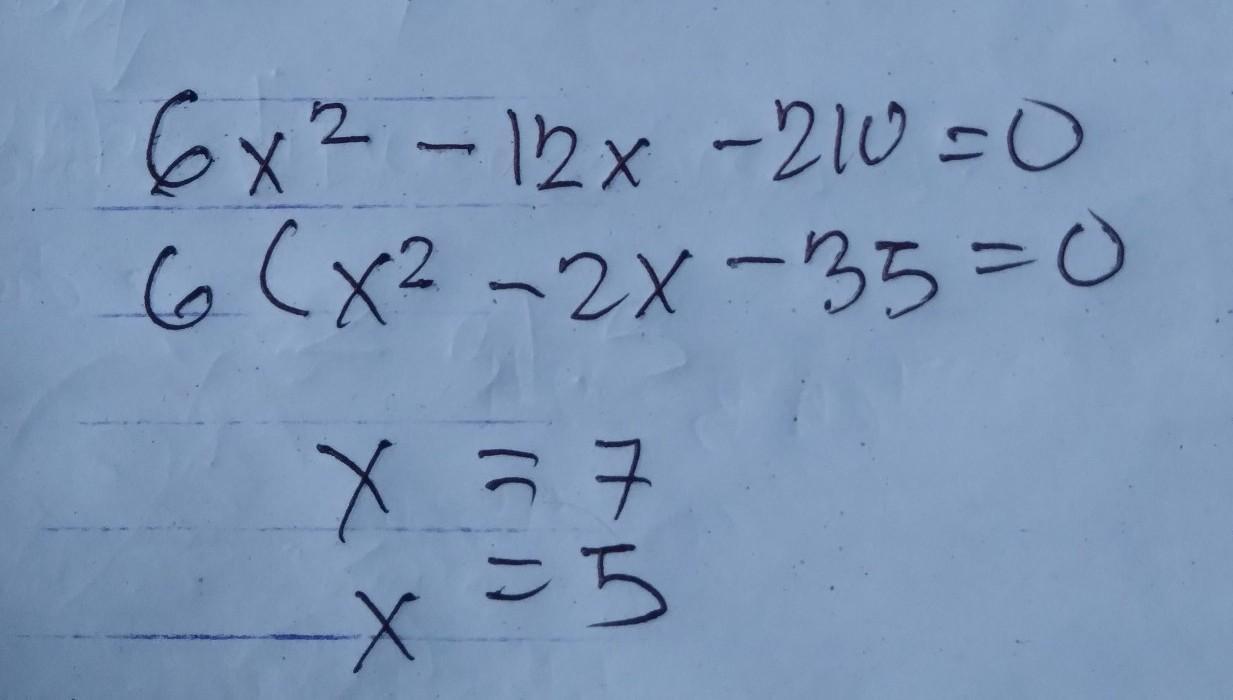 6x² - 12x - 210 = 0
6 (x² - 2x - 35 = 0
x = 7
x = 5